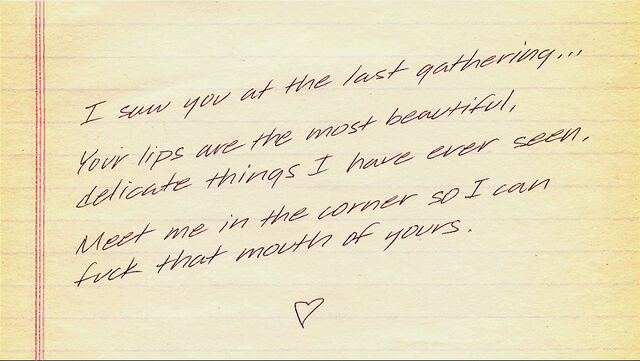 I saw you at the last gathering...
Your lips are the most beautiful,
delicate things I have ever seen.
Meet me in the corner so I can
fuck that mouth of yours.